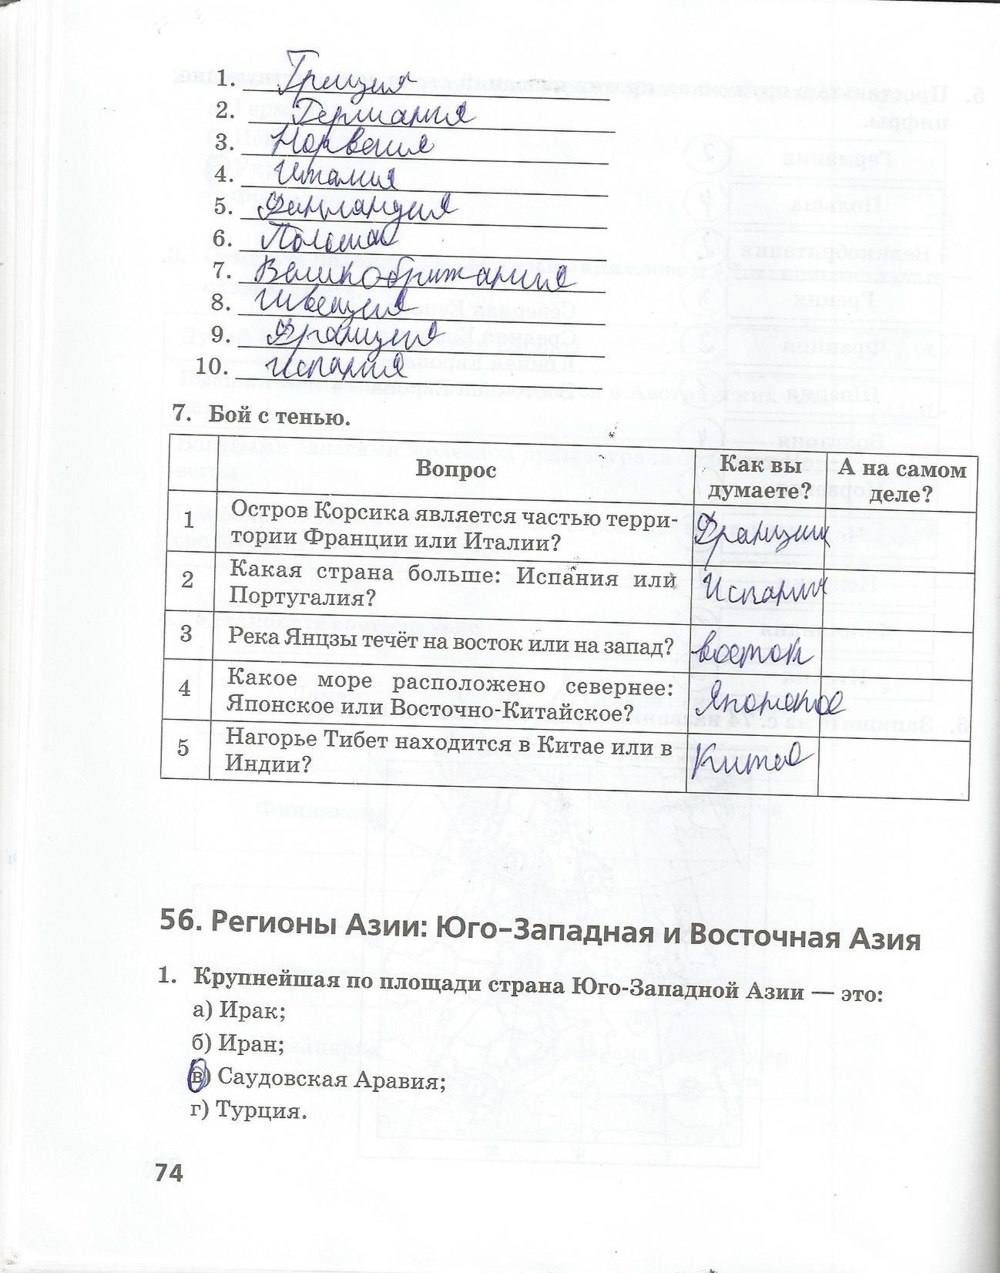 1. Греция
2. Германия
3. Норвегия
4. Италия
5. Финляндия
6. Польша
7. Великобритания
8. Швеция
9. Франция
10. Испания
7. Бой с тенью.
Вопрос
Как вы думаете?
А на самом деле?
1 Остров Корсика является частью терри-
тории Франции или Италии?
Франции
2 Какая страна больше: Испания или
Португалия?
Испания
3 Река Янцзы течёт на восток или на запад?
восток
4 Какое море расположено севернее:
Японское или Восточно-Китайское?
Японское
5 Нагорье Тибет находится в Китае или в
Индии?
Китае
56. Регионы Азии: Юго-Западная и Восточная Азия
1. Крупнейшая по площади страна Юго-Западной Азии — это:
а) Ирак;
б) Иран;
в) Саудовская Аравия;
г) Турция.
74